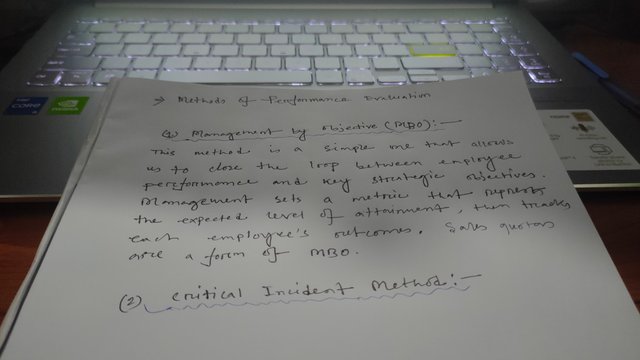 → Methods of Performance Evaluation
(1) Management by Objective (MBO):-
This method is a simple one that allows
us to close the loop between employee
performance and key strategic objectives.
Management sets a metric that represts
the expected level of attainment, then tracks
each employee's outcomes. Sales quotas
are a form of MBO.
(2) Critical Incident Method:-
intel
CORE
NVIDIA